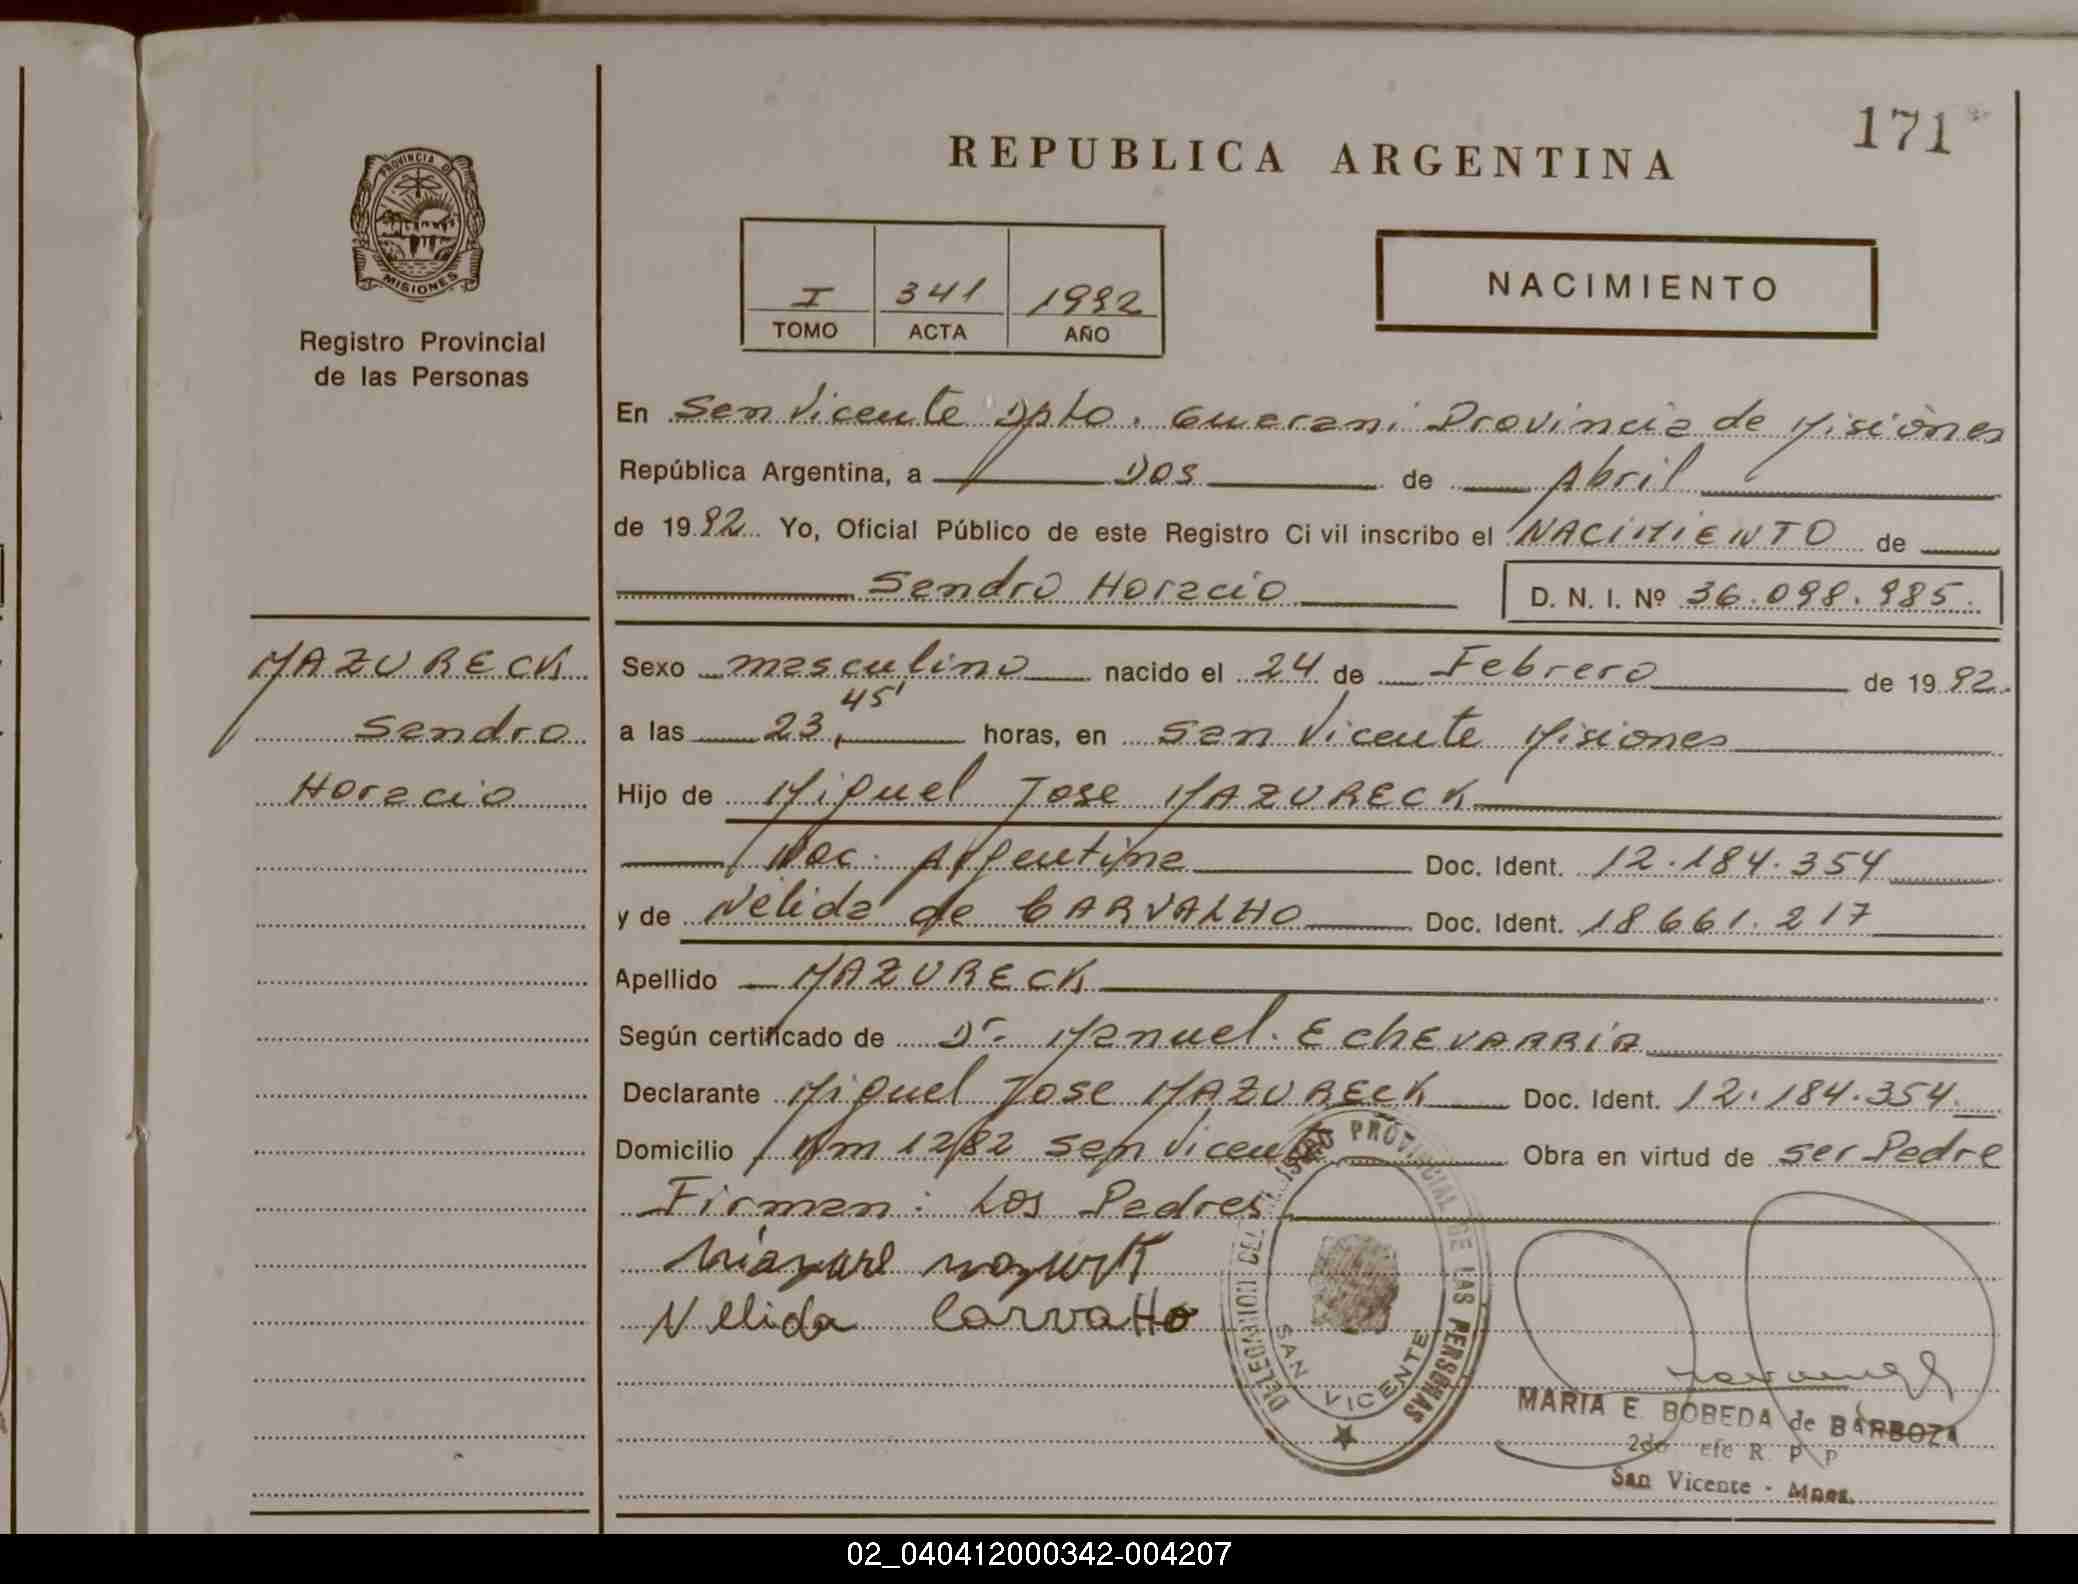 171
REPUBLICA ARGENTINA
PROVINCIA DE
MISIONES
Registro Provincial
de las Personas
I 341 1992
TOMO ACTA AÑO
NACIMIENTO
En San Vicente Dpto. Guarani Provincia de Misiones
República Argentina, a Dos de Abril
de 1992 Yo, Oficial Público de este Registro Civil inscribo el NACIMIENTO de
Sandro Horacio D. N. I. Nº 36.098.985.
MAZURECK
Sandro
Horacio
Sexo masculino nacido el 24 de Febrero de 1992.
a las 23,45' horas, en San Vicente Misiones
Hijo de Miguel Jose MAZURECK
Nac. Argentina Doc. Ident. 12.184.354
y de Nélida de CARVALHO Doc. Ident. 18661.217
Apellido MAZURECK
Según certificado de Dr. Manuel. EchEVARRiA
Declarante Miguel Jose MAZURECK Doc. Ident. 12.184.354.
Domicilio Km 1282 San Vicente Obra en virtud de ser Padre
Firman: Los Padres
Nelida Carvalho
PROVINCIAL DE LAS PERSONAS
SAN VICENTE
MARIA E. BOBEDA de BARBOZA
R. P. P
San Vicente - Mnes.
02_040412000342-004207